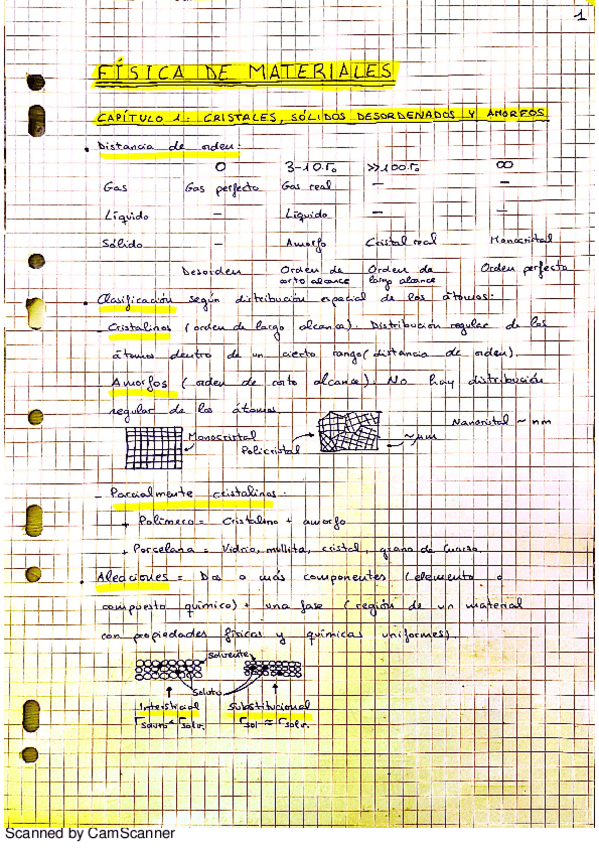 1
FÍSICA DE MATERIALES
CAPÍTULO 1: CRISTALES, SÓLIDOS DESORDENADOS Y AMORFOS
• Distancia de orden:
0 3-10·r₀ >>100·r₀ ∞
Gas Gas perfecto Gas real – –
Líquido – Líquido – –
Sólido – Amorfo Cristal real Monocristal
Desorden Orden de corto alcance Orden de largo alcance Orden perfecto
• Clasificación según distribución espacial de los átomos:
- Cristalinos (orden de largo alcance). Distribución regular de los
átomos dentro de un cierto rango (distancia de orden).
- Amorfos (orden de corto alcance). No hay distribución
regular de los átomos.
Monocristal
Policristal
~μm
Nanocristal ~ nm
- Parcialmente cristalinos:
+ Polímero = Cristalino + amorfo
+ Porcelana = Vidrio, mullita, cristal, grano de cuarzo.
• Aleaciones = Dos o más componentes (elemento o
compuesto químico) + una fase (región de un material
con propiedades físicas y químicas uniformes).
Solvente
Soluto
Intersticial Substitucional
r r
Scanned by CamScanner